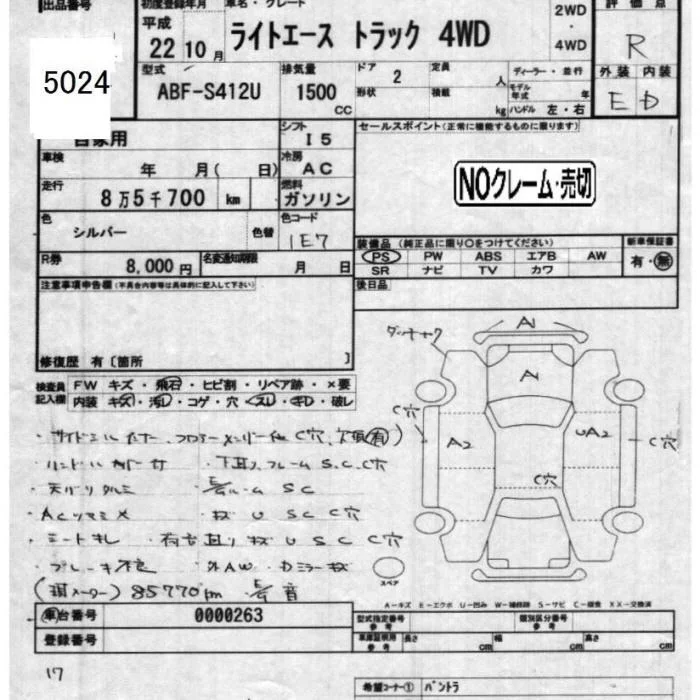 出品番号 初度登録年月 車名・グレード 2WD 評価点
平成
22 10 月 ライトエース トラック 4WD ・ 4WD R
5024
型式 排気量 ドア 2 定員 人 ディーラー・並行 外装 内装
ABF-S412U 1500 CC 形状 積載 kg モデル年式 年 ハンドル 左・右 E D
自家用 シフト I5 セールスポイント(正常に機能するものに限ります)
車検 年 月( 日) 冷房 AC
走行 8万5千700 km 燃料 ガソリン NOクレーム・売切
色 シルバー 色替 色コード 1E7
装備品 (純正品に限り○をつけてください) 新車保証書
PS PW ABS エアB AW 有・無
SR ナビ TV カワ
R券 8,000円 名変通知期限 月 日
後日品
注意事項申告欄(不具合内容等は具体的に記入して下さい)
修復歴 有〔箇所 〕
検査員記入欄 FW キズ・飛石・ヒビ割・リペア跡・×要
内装 キズ・汚レ・コゲ・穴・スレ・キレ・破レ
A
A
C穴 A2 UA2 C穴
C穴
スペア
・ハンドルカバー付 ・下廻り、フレームS.C.C穴
・天バリタルミ
・ACツマミ×
・シートキレ
・外AW
85770km
A-キズ E-エクボ U-凹み W-補修跡 S-サビ C-腐食 XX-交換済
車台番号 0000263 型式指定番号 参考 類別区分番号 参考
登録番号 車庫証明用 参考 長さ cm 幅 cm 高さ cm
17
希望コーナー① バントラ